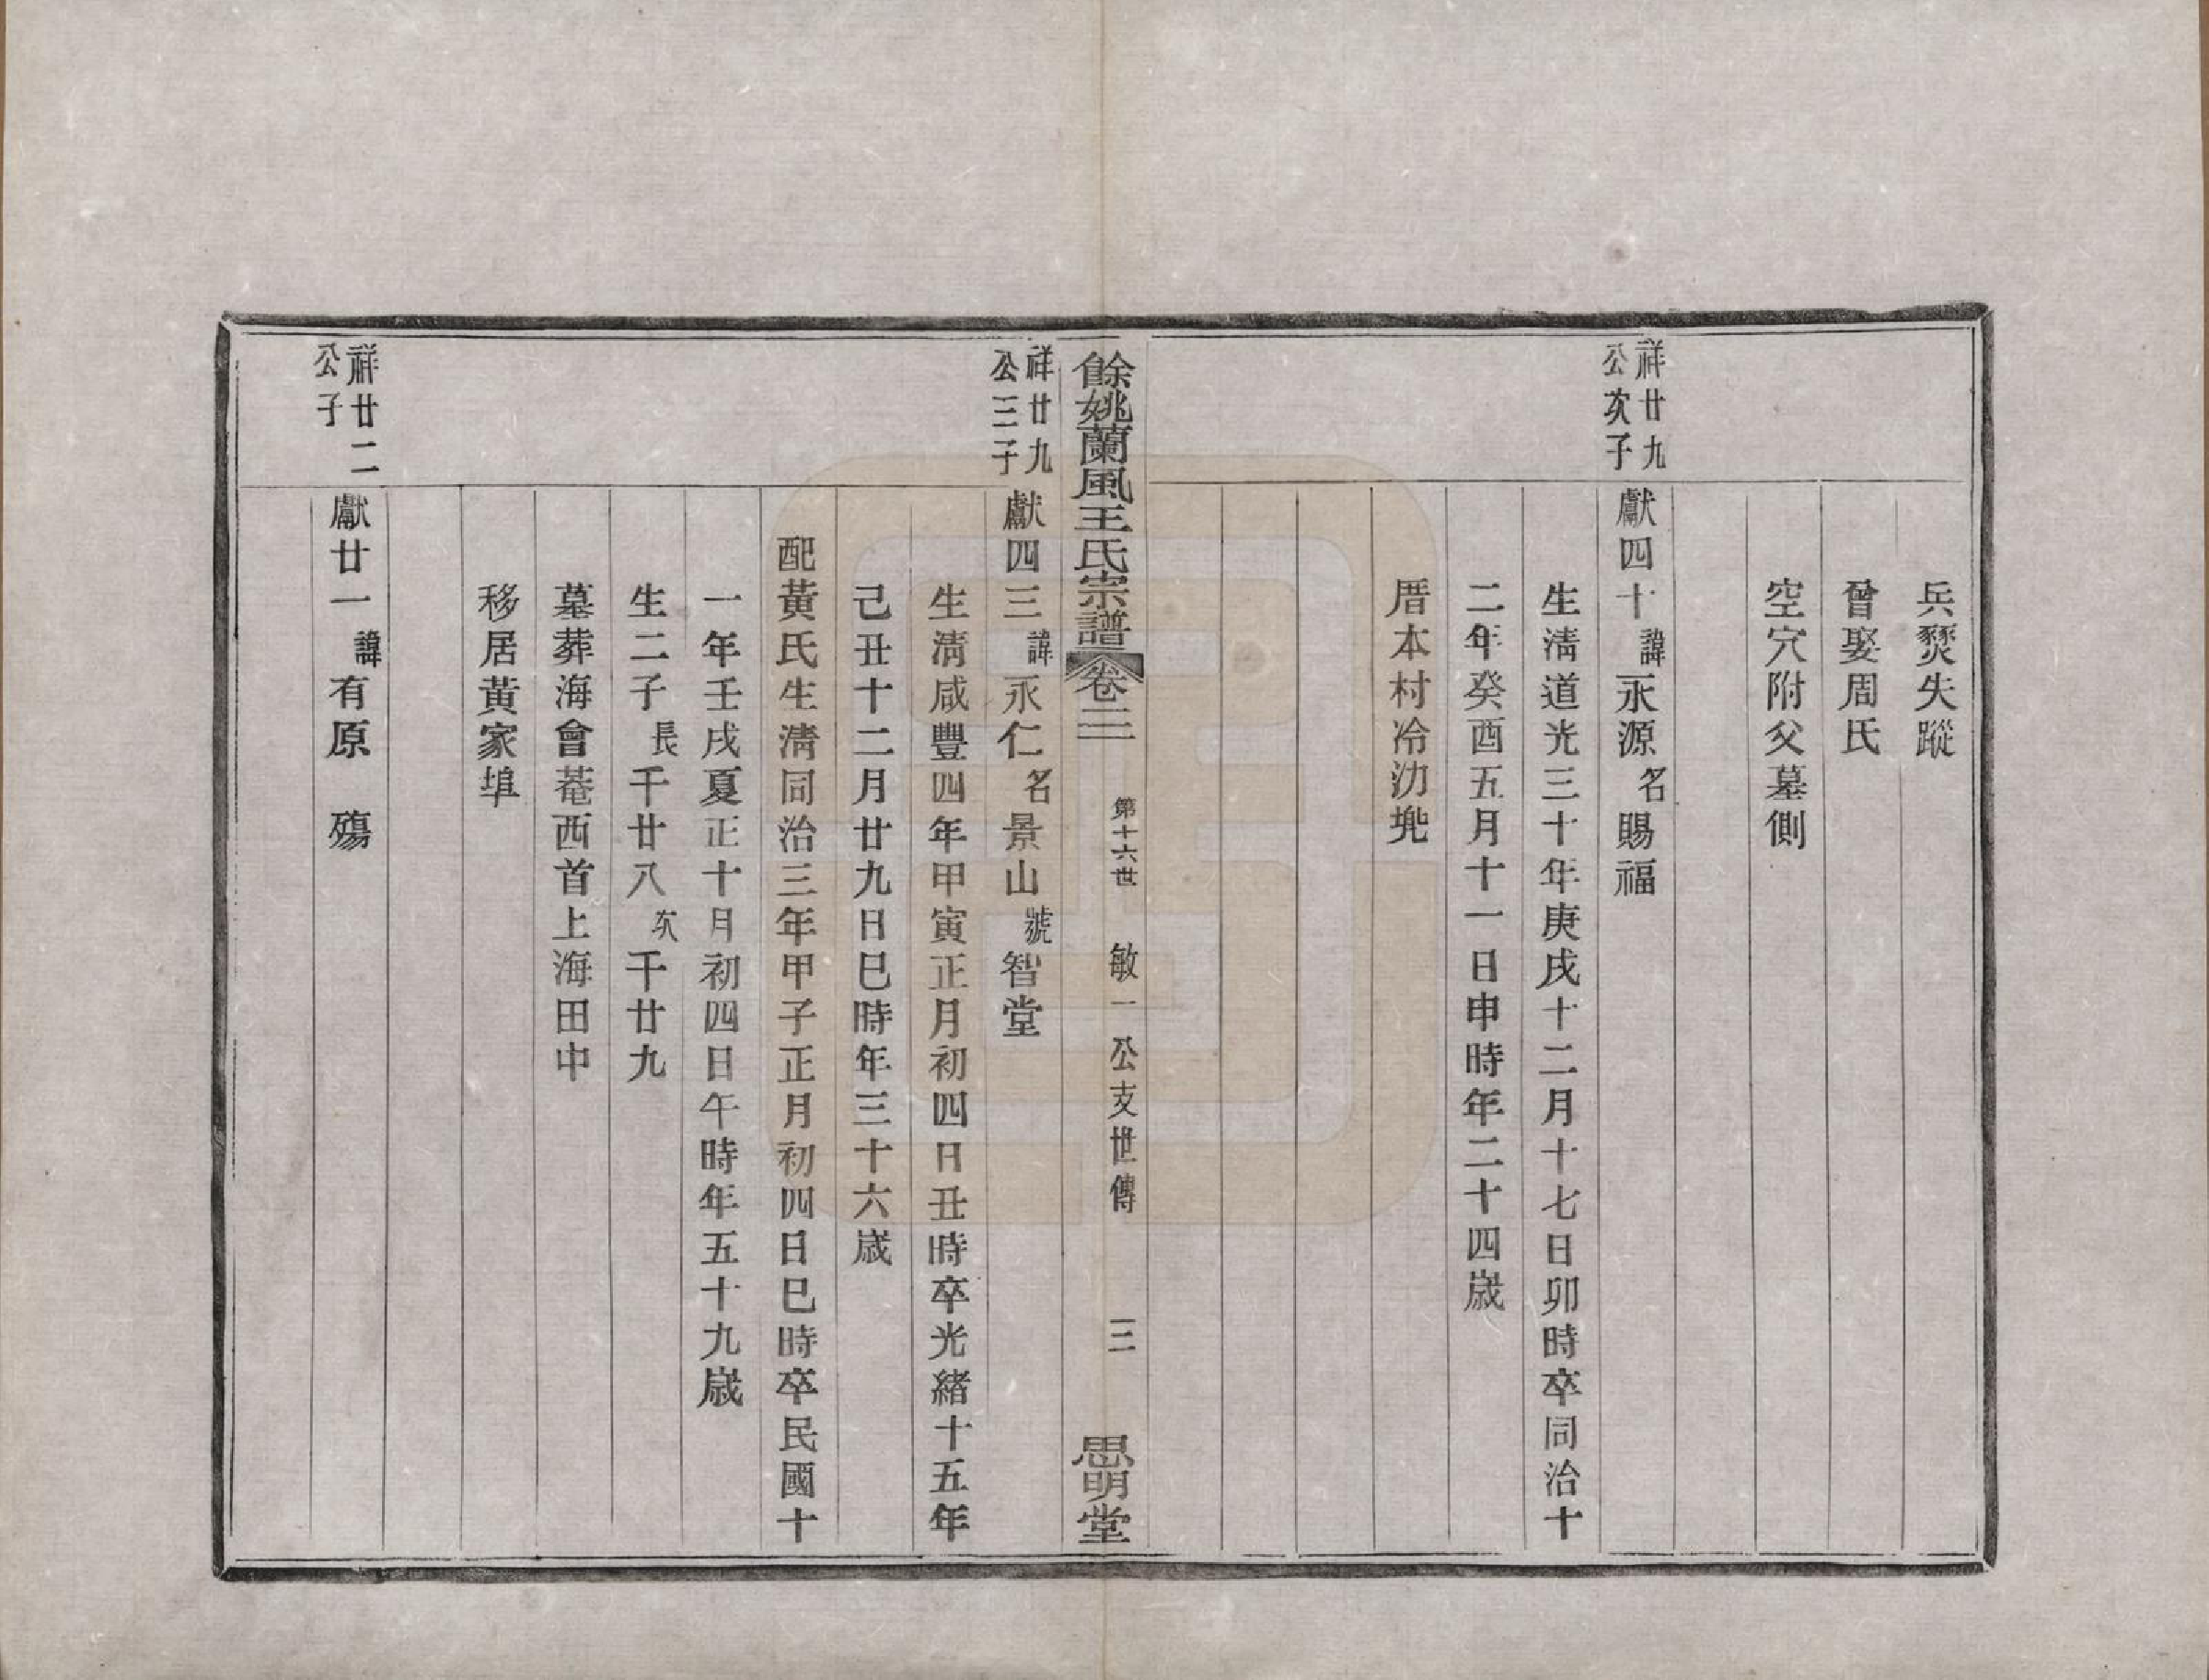 兵燹失蹤
曾娶周氏
空穴附父墓側
祥廿九
公次子
獻四十諱永源名賜福
生淸道光三十年庚戌十二月十七日卯時卒同治十
二年癸酉五月十一日申時年二十四歲
厝本村冷沏兠
餘姚蘭風王氏宗譜 卷二 第十六世 敏一公支世傳 三 思明堂
祥廿九
公三子
獻四三諱永仁名景山號智堂
生淸咸豐四年甲寅正月初四日丑時卒光緒十五年
己丑十二月廿九日巳時年三十六歲
配黃氏生淸同治三年甲子正月初四日巳時卒民國十
一年壬戌夏正十月初四日午時年五十九歲
生二子長千廿八次千廿九
墓葬海會菴西首上海田中
移居黃家埠
祥廿二
公子
獻廿一諱有原 殤